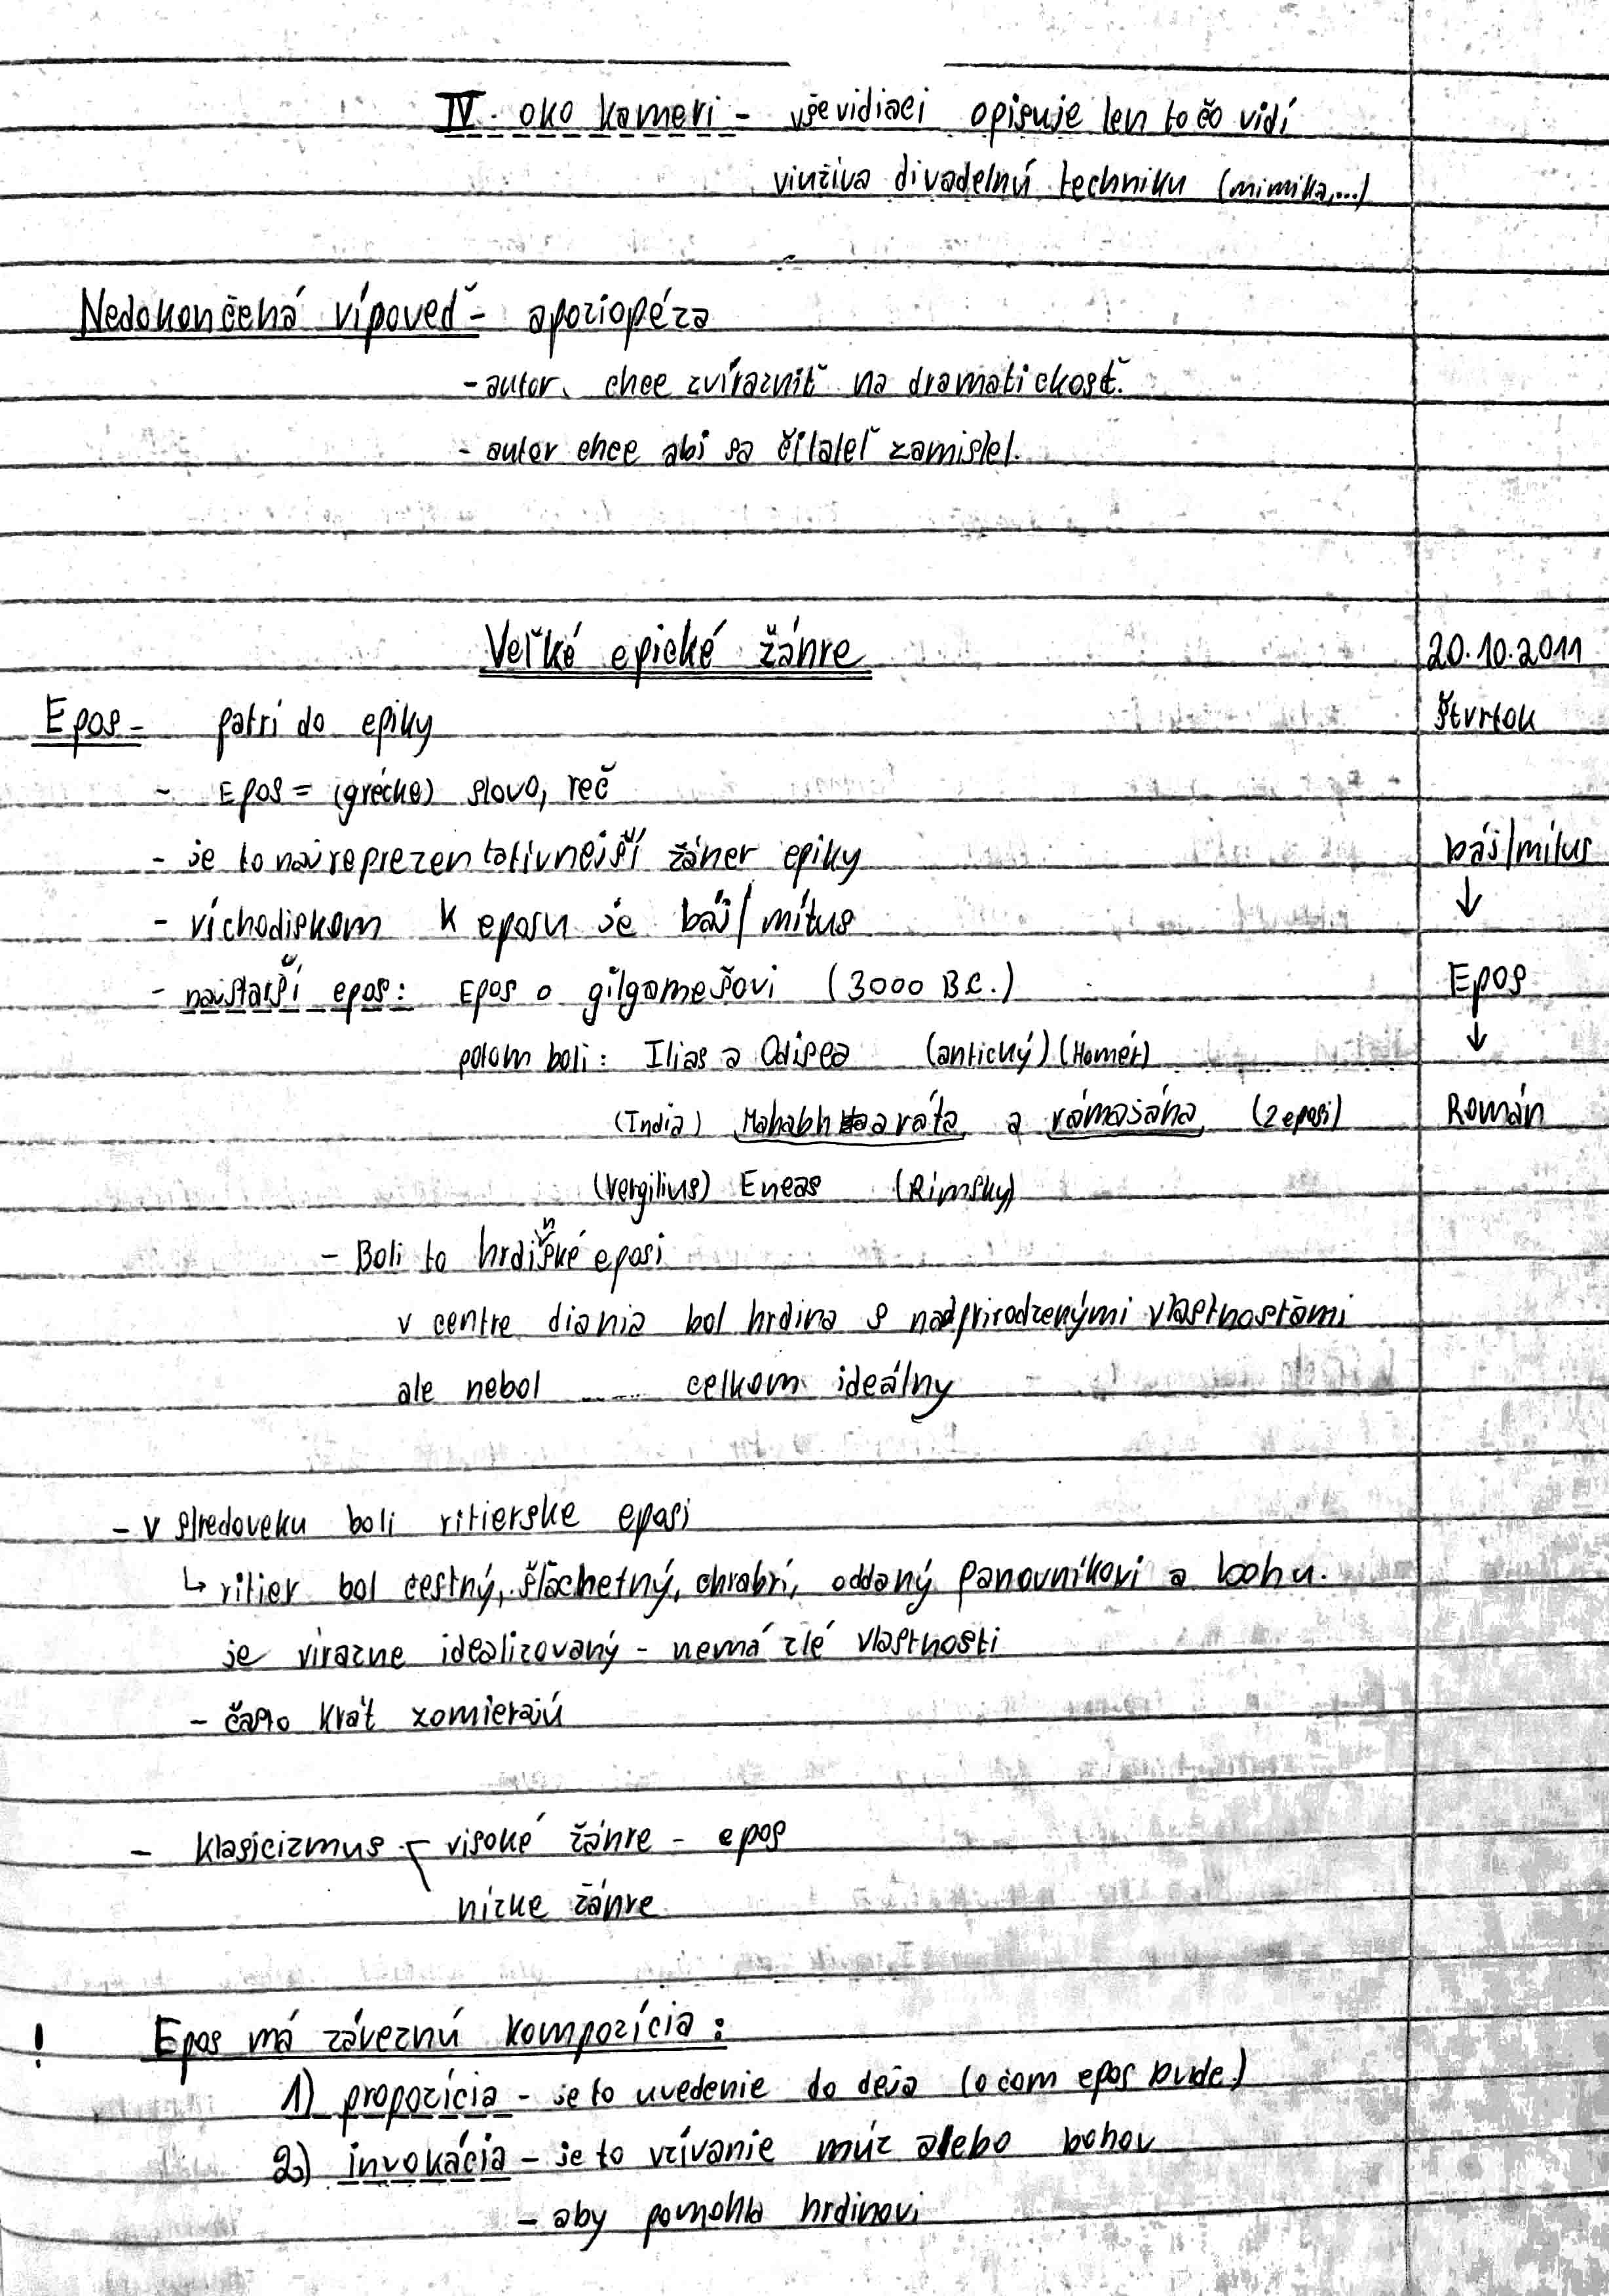 IV. oko kameri - vševidiaci opisuje len to čo vidí
viužíva divadelnú techniku (mimika,...)
Nedokončená vípoveď - apoziopéza
- autor chce zvírazniť na dramatickosť.
- autor chce abi sa čitateľ zamislel.
Veľké epické žánre 20.10.2011
Epos - patrí do epiky štvrtok
- Epos = (grécke) slovo, reč
- je to najreprezentatívnejší žáner epiky báj/mítus
- víchodiskom k eposu je báj/mítus ↓
- najstarší epos: Epos o gilgamešovi (3000 B.C.) Epos
potom boli: Ilias a Odisea (antický) (Homér) ↓
(India) Mahabharáta a rámajána (2 eposi) Román
(Vergilius) Eneas (Rímsky)
- Boli to hrdinské eposi
v centre diania bol hrdina s nadprirodzenými vlastnosťami
ale nebol ...... celkom ideálny
- v stredoveku boli ritierske eposi
↳ ritier bol čestný, šľachetný, chrabrí, oddaný panovníkovi a bohu.
je virazne idealizovaný - nemá zlé vlastnosti
- často krát zomierajú
- klasicizmus visoké žánre - epos
nízke žánre
! Epos má záveznú kompozícia:
1) propozícia - je to uvedenie do deja (o čom epos bude)
2) invokácia - je to vzívanie múz alebo bohov
- aby pomohla hrdinovi